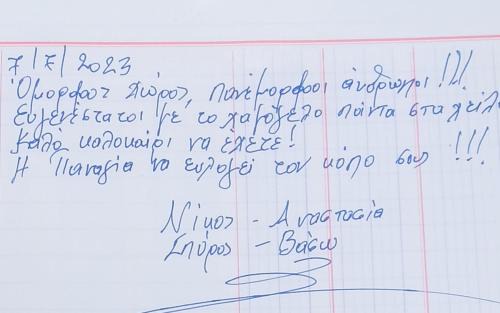 7/7/2023
Όμορφος χώρος, πανέμορφοι άνθρωποι!!!
Ευγενέστατοι με το χαμόγελο πάντα στα χείλη
Καλό καλοκαίρι να έχετε!
Η Παναγία να ευλογεί τον κόπο σας!!!
Νίκος - Αναστασία
Σπύρος - Βάσω